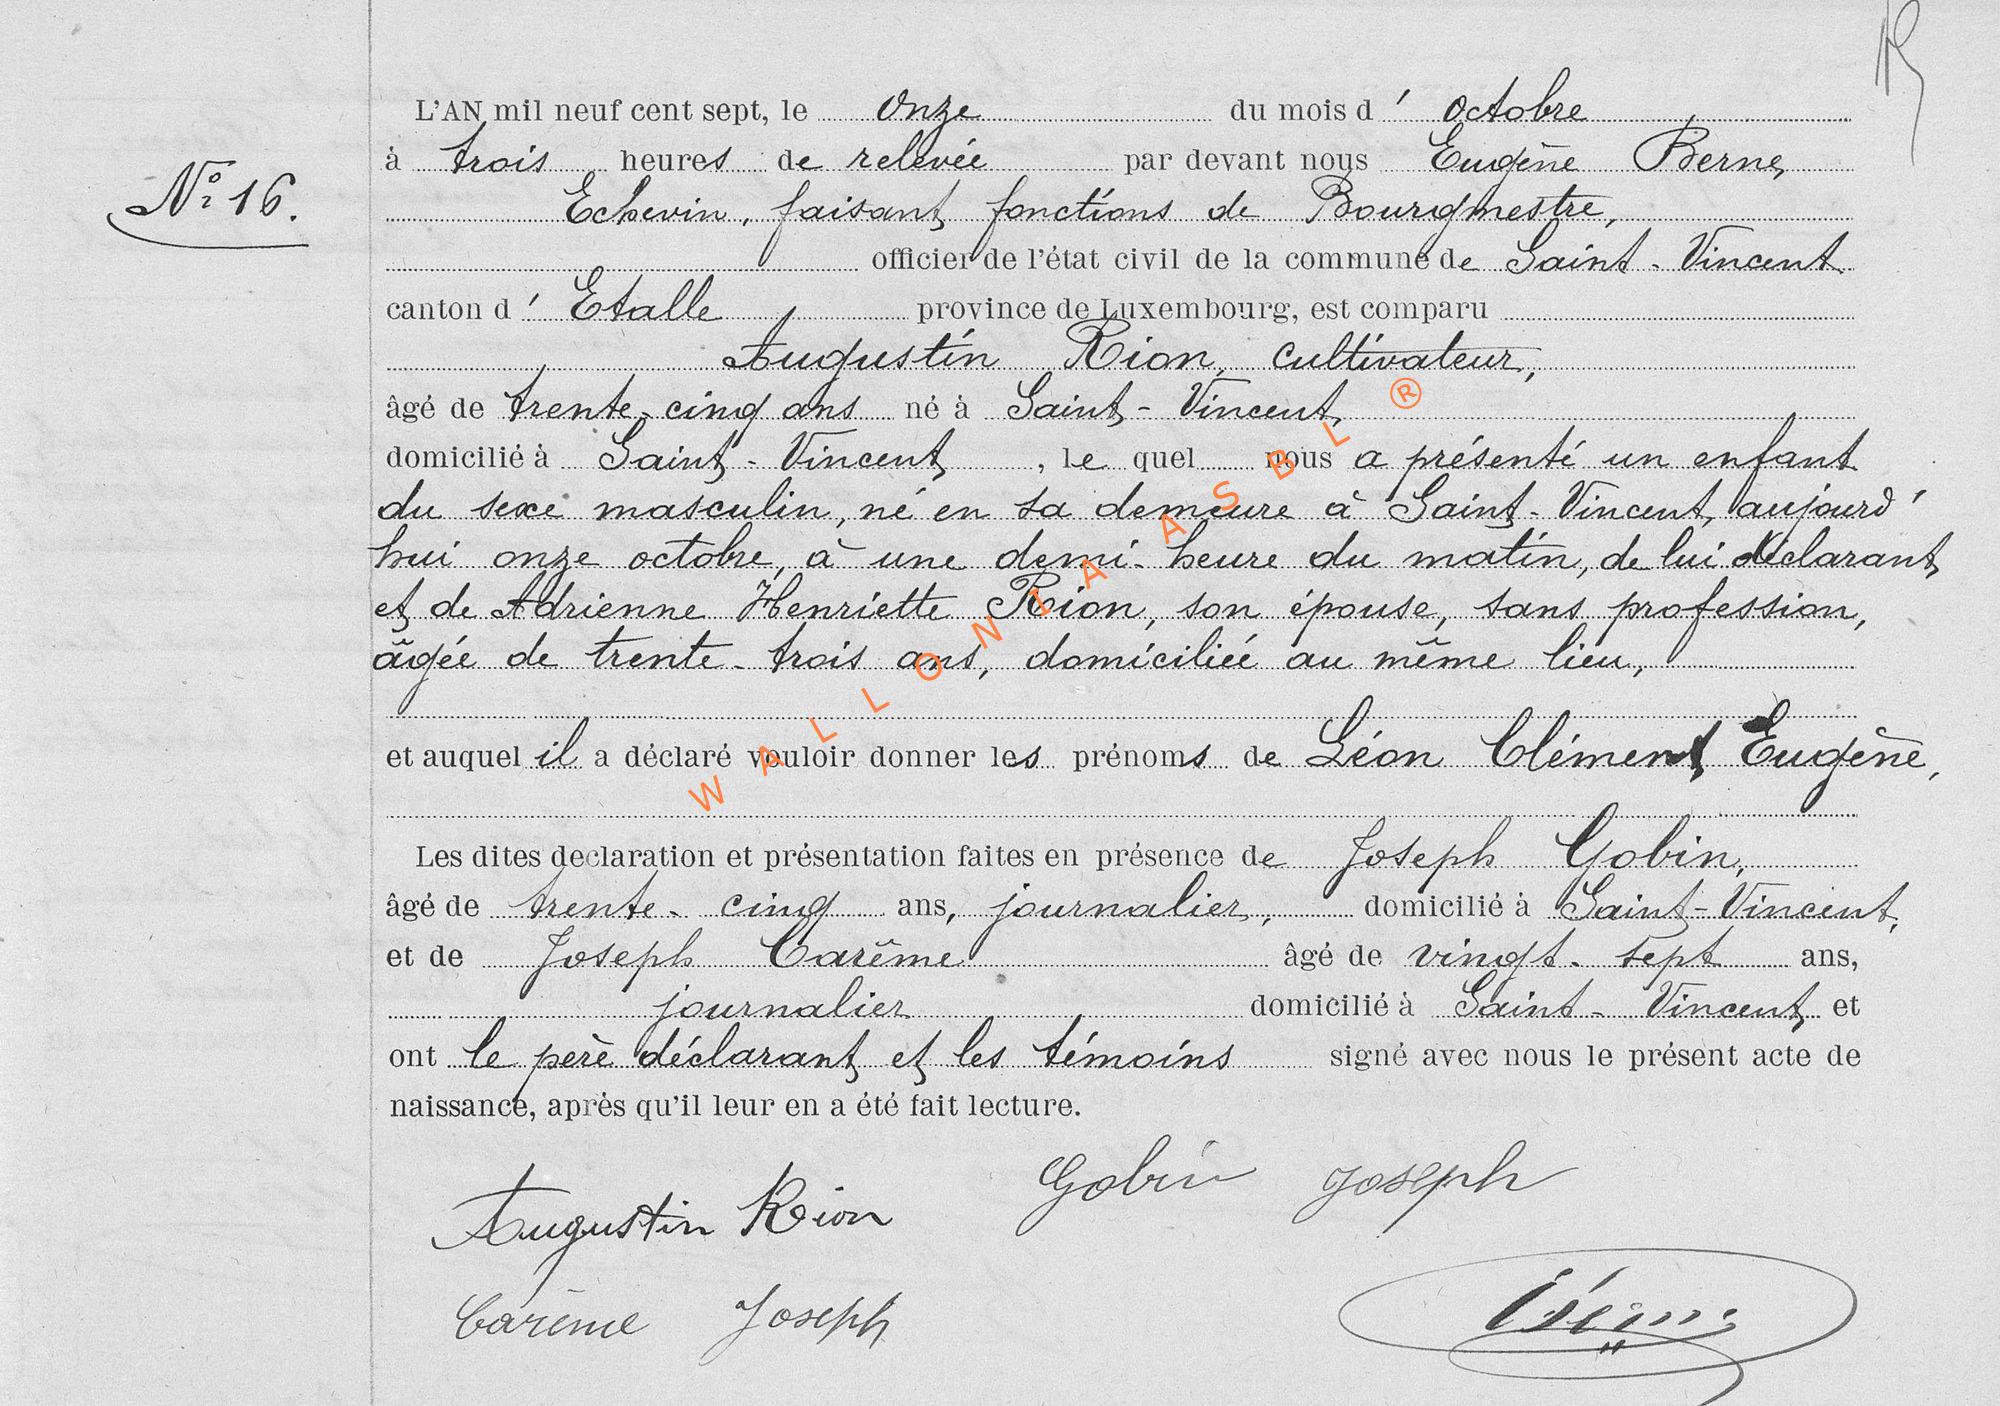 L'AN mil neuf cent sept, le onze du mois d' octobre
à trois heures de relevée par devant nous Eugène Berne,
N° 16.
Echevin, faisant fonctions de Bourgmestre,
officier de l'état civil de la commune de Saint-Vincent
canton d' Etalle province de Luxembourg, est comparu
Augustin Rion, cultivateur,
âgé de trente-cinq ans né à Saint-Vincent,
domicilié à Saint-Vincent, le quel nous a présenté un enfant
du sexe masculin, né en sa demeure à Saint-Vincent, aujourd'
hui onze octobre, à une demi-heure du matin, de lui déclarant
et de Adrienne Henriette Rion, son épouse, sans profession,
âgée de trente-trois ans, domiciliée au même lieu,
et auquel il a déclaré vouloir donner les prénoms de Léon Clément Eugène,
Les dites declaration et présentation faites en présence de Joseph Gobin,
âgé de trente-cinq ans, journalier, domicilié à Saint-Vincent,
et de Joseph Carême âgé de vingt-sept ans,
journalier domicilié à Saint-Vincent et
ont le père déclarant et les témoins signé avec nous le présent acte de
naissance, après qu'il leur en a été fait lecture.
Augustin Rion Gobin Joseph
Carême Joseph
WALLONIA ASBL ®